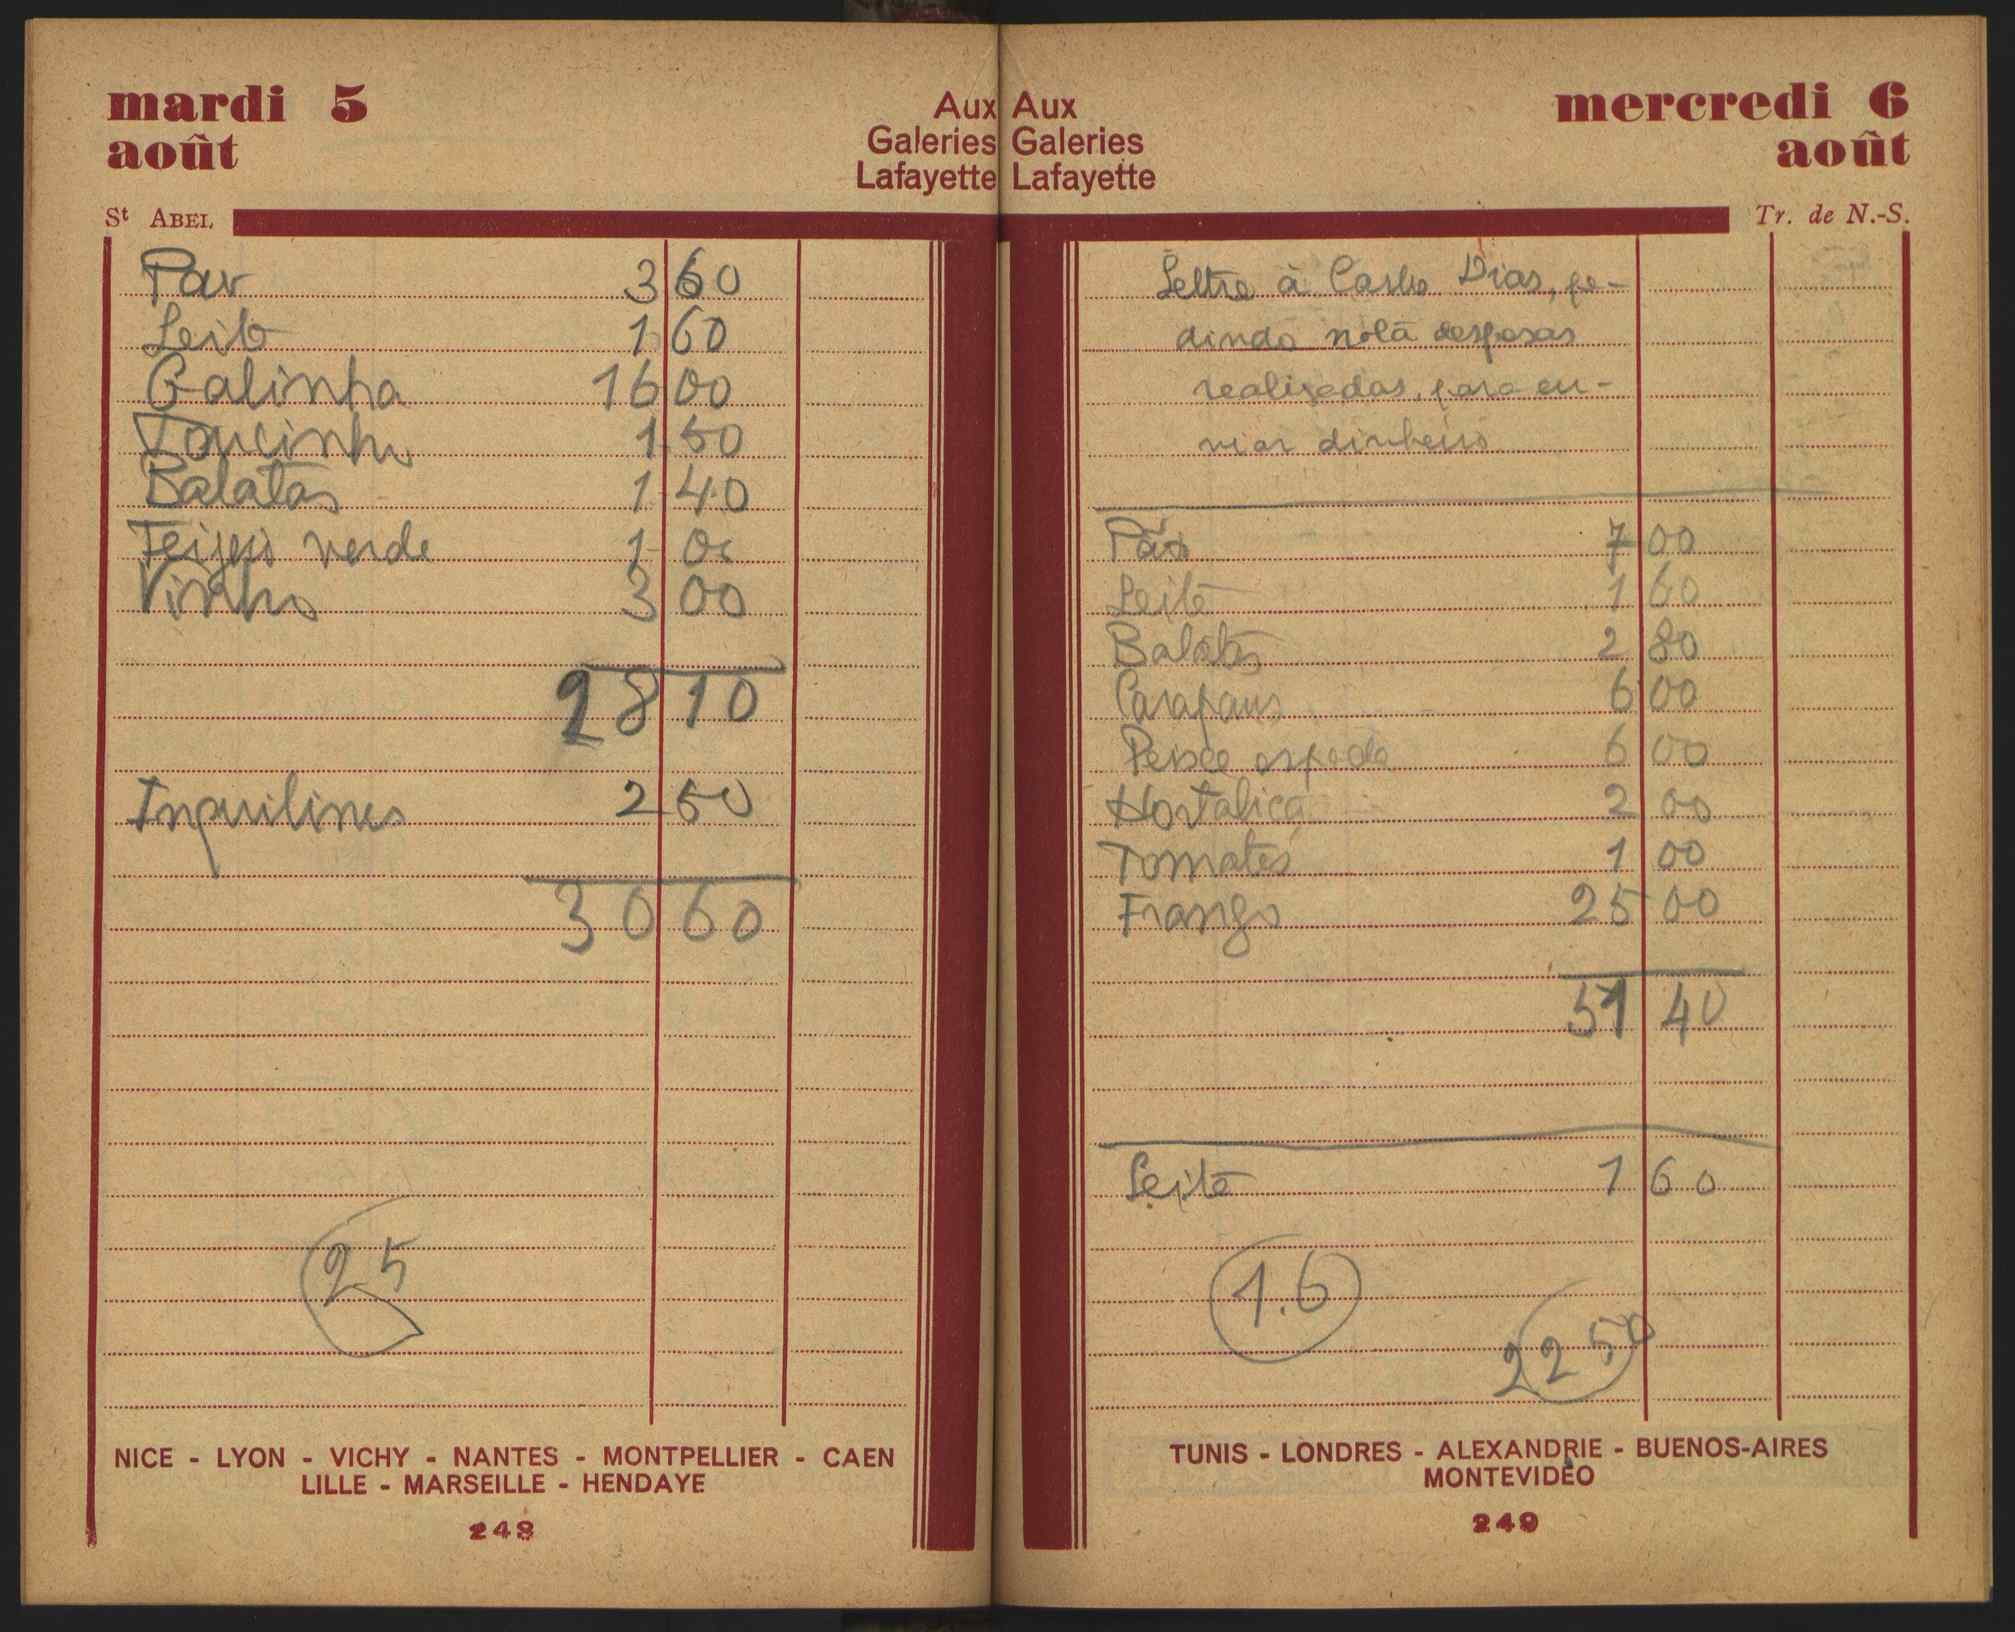 mardi 5
août
Aux
Galeries
Lafayette
St ABEL
Pav 3 60
Leite 1 60
Galinha 16 00
Toucinho 1 50
Batatas 1 40
Feijão verde 1 00
Vinho 3 00
28 10
Inquilinos 2 50
30 60
25
NICE - LYON - VICHY - NANTES - MONTPELLIER - CAEN
LILLE - MARSEILLE - HENDAYE
248
Aux
Galeries
Lafayette
mercredi 6
août
Tr. de N.-S.
Lettre à Castro Dias, pe-
dindo nota despesas
realizadas, para en-
viar dinheiro
Pão 7 00
Leite 1 60
Batatas 2 80
Carapaus 6 00
Peixe espada 6 00
Hortaliça 2 00
Tomates 1 00
Frango 25 00
51 40
Leite 1 60
1.6
22 50
TUNIS - LONDRES - ALEXANDRIE - BUENOS-AIRES
MONTEVIDEO
249